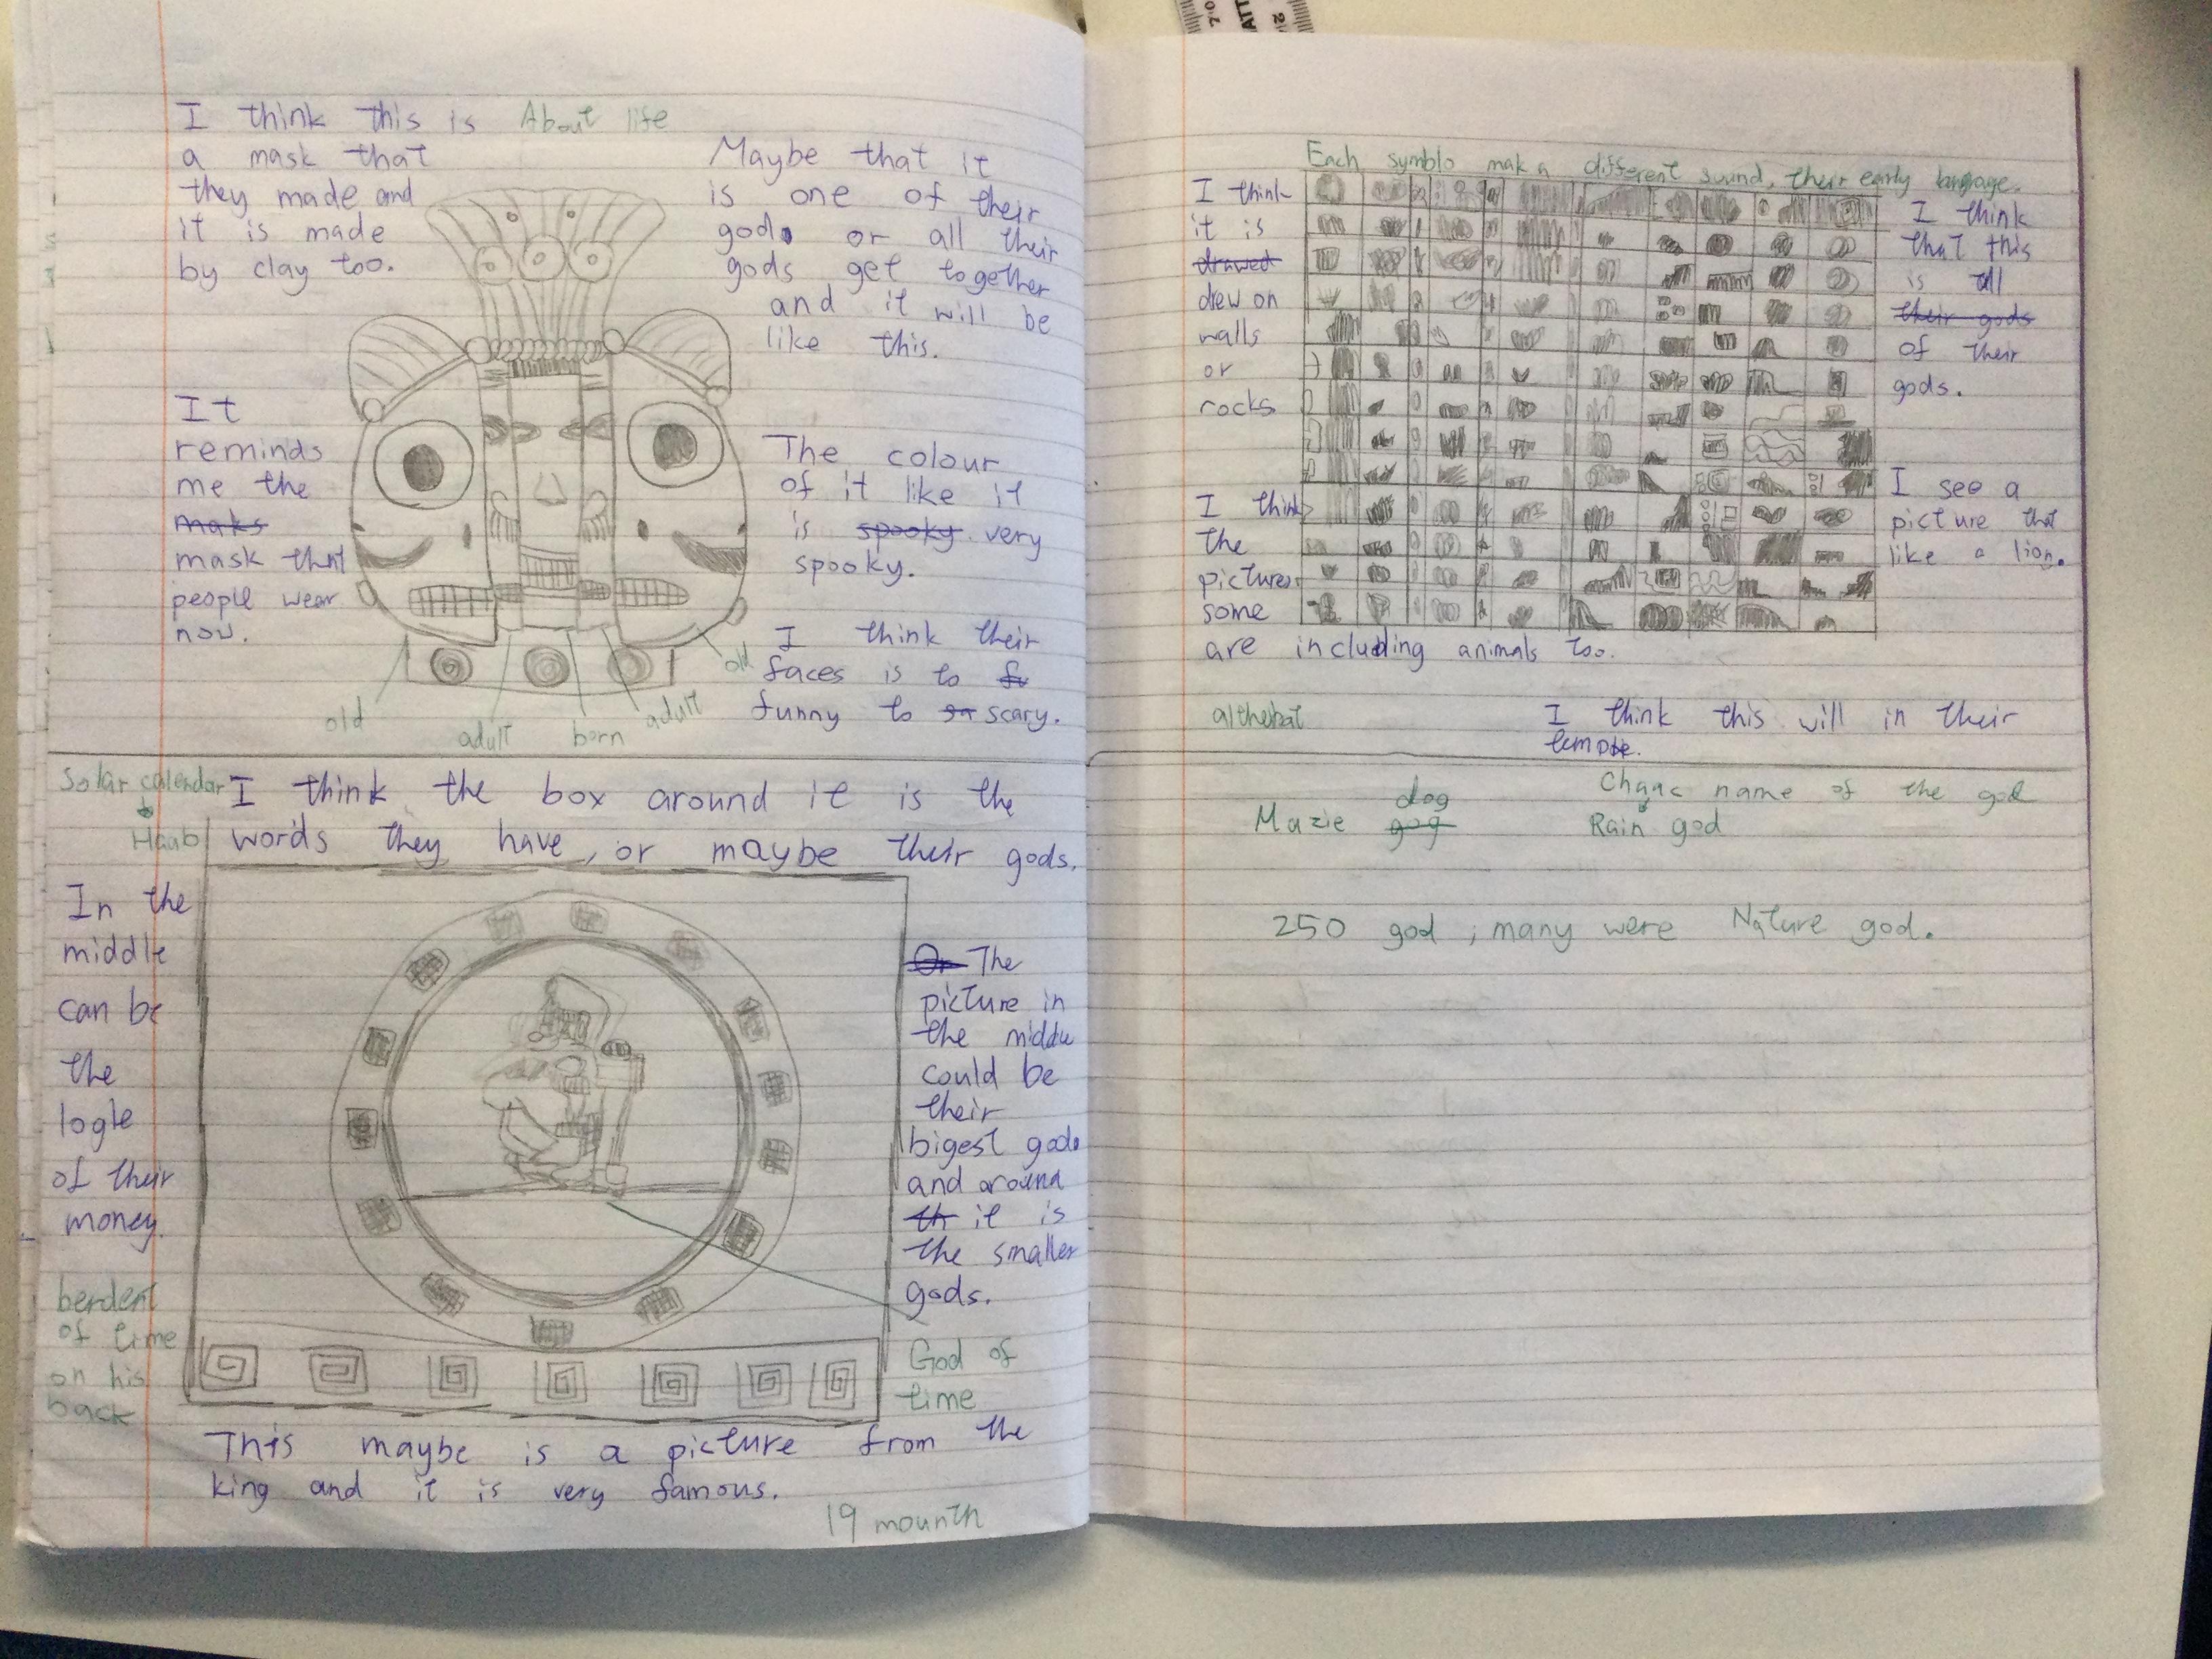 I think this is About life
a mask that
they made and
it is made
by clay too.
Maybe that it
is one of their
gods or all their
gods get together
and it will be
like this.
It
reminds
me the
maks
mask that
people wear
now.
The colour
of it like it
is spooky very
spooky.
I think their
faces is to fu
funny to sa scary.
old
adult
born
adult
old
Solar calendar
Haab
I think the box around it is the
words they have, or maybe their gods.
In the
middle
can be
the
logle
of their
money.
berdent
of time
on his
back
Or The
picture in
the middle
could be
their
bigest gods
and around
th it is
the smaller
gods.
God of
time
This maybe is a picture from the
king and it is very famous.
19 mounth
Each symblo make a different sound, their early language.
I think
it is
drawed
drew on
walls
or
rocks
I think
the
pictures
some
are including animals too.
I think
that this
is all
their gods
of their
gods.
I see a
picture that
like a lion.
I think this will in their
temple.
Chaac name of the god
Rain god
Mazie gog
dog
250 god, many were Nature god.
ATT